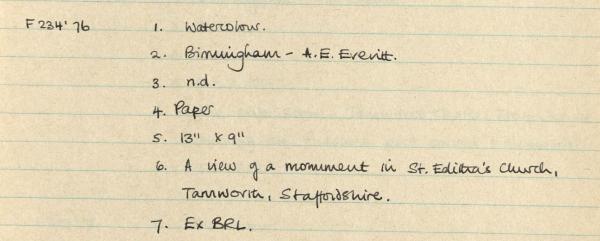 F 234'76 1. Watercolour.
2. Birmingham - A.E. Everitt.
3. n.d.
4. Paper
5. 13" x 9"
6. A view of a monument in St. Editha's Church,
Tamworth, Staffordshire.
7. Ex BRL.